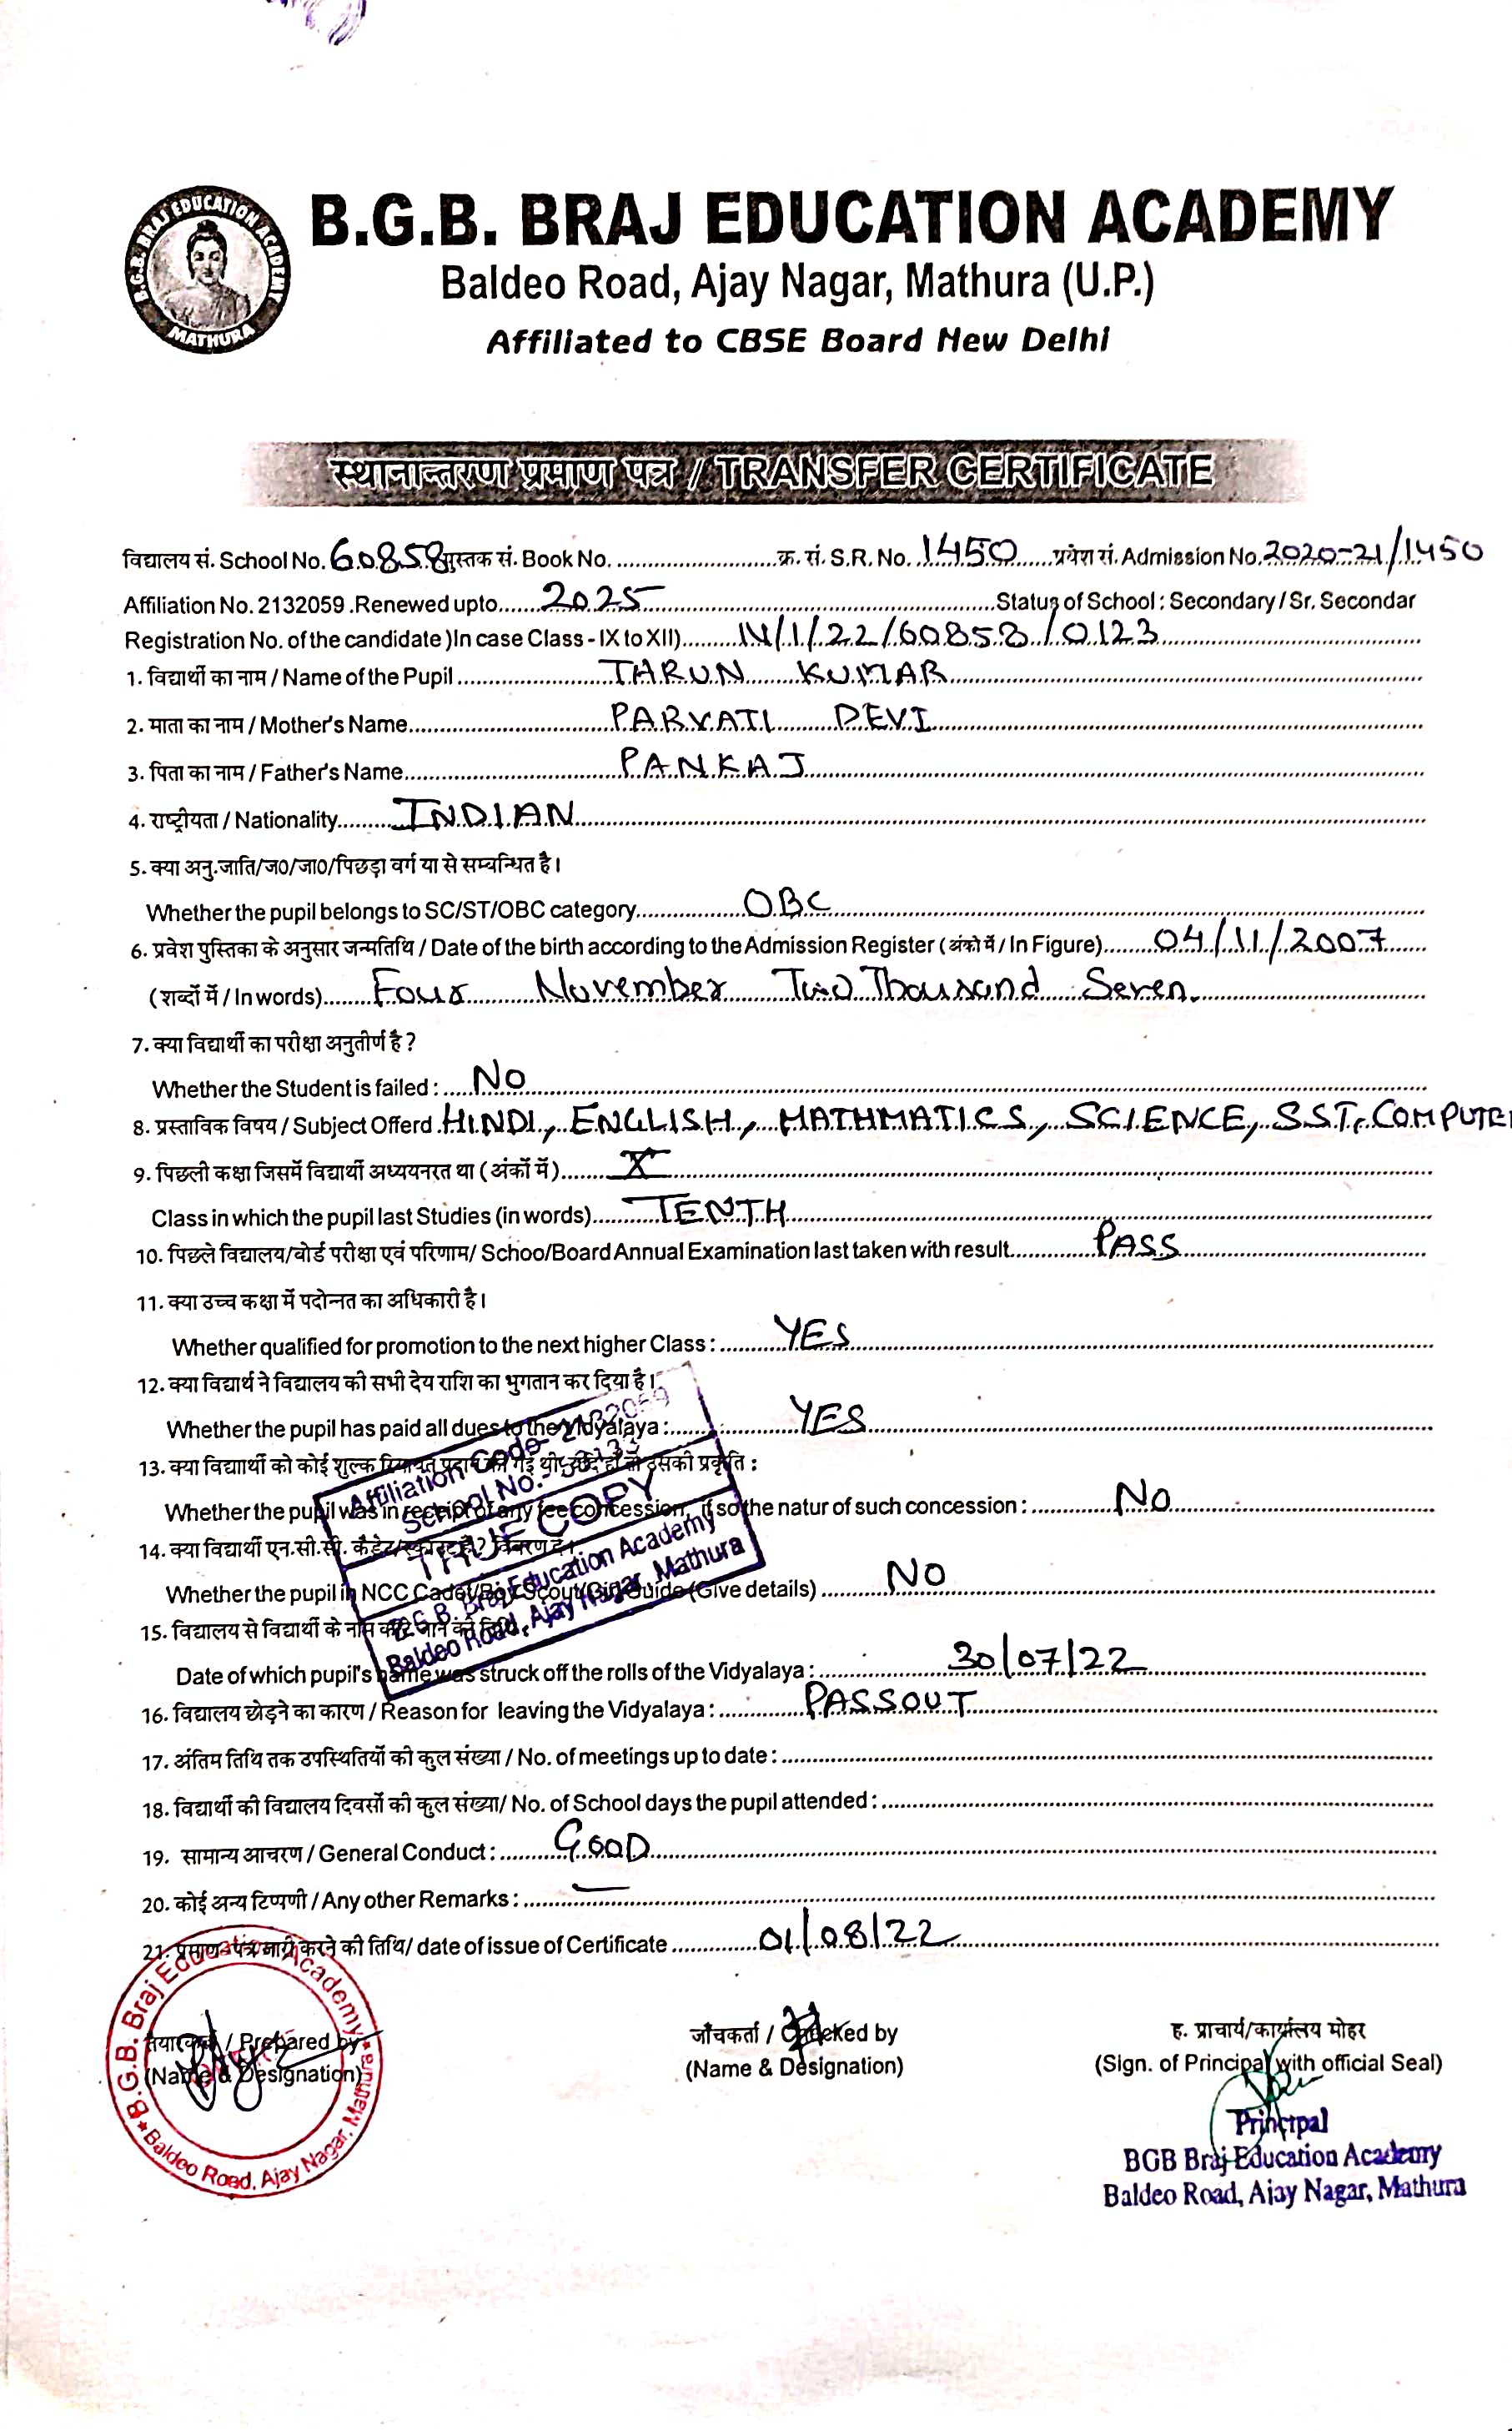 B.G.B. BRAJ EDUCATION ACADEMY
MATHURA
B.G.B. BRAJ EDUCATION ACADEMY
Baldeo Road, Ajay Nagar, Mathura (U.P.)
Affiliated to CBSE Board New Delhi
स्थानान्तरण प्रमाण पत्र / TRANSFER CERTIFICATE
विद्यालय सं. School No. 60858 पुस्तक सं. Book No. ........ क्र. सं. S.R. No. 1450 प्रवेश सं. Admission No. 2020-21/1450
Affiliation No. 2132059 .Renewed upto....... 2025 ........Status of School : Secondary / Sr. Secondar
Registration No. of the candidate )In case Class - IX to XII)......... IV/1/22/60858/0123
1. विद्यार्थी का नाम / Name of the Pupil ........ THRUN KUMAR
2. माता का नाम / Mother's Name........ PARVATI DEVI
3. पिता का नाम / Father's Name........ PANKAJ
4. राष्ट्रीयता / Nationality......... INDIAN
5. क्या अनु.जाति/ज0/जा0/पिछड़ा वर्ग या से सम्बन्धित है।
Whether the pupil belongs to SC/ST/OBC category........ OBC
6. प्रवेश पुस्तिका के अनुसार जन्मतिथि / Date of the birth according to the Admission Register ( अंको में / In Figure)........ 04/11/2007
( शब्दों में / In words)........ Four November Two Thousand Seven.
7. क्या विद्यार्थी का परीक्षा अनुतीर्ण है ?
Whether the Student is failed : ..... No
8. प्रस्ताविक विषय / Subject Offerd . HINDI, ENGLISH, MATHMATICS, SCIENCE, SST, COMPUTER
9. पिछली कक्षा जिसमें विद्यार्थी अध्ययनरत था ( अंकों में )....... X
Class in which the pupil last Studies (in words)........... TENTH
10. पिछले विद्यालय/बोर्ड परीक्षा एवं परिणाम/ Schoo/Board Annual Examination last taken with result............ PASS
11. क्या उच्च कक्षा में पदोन्नत का अधिकारी है।
Whether qualified for promotion to the next higher Class : ........... YES
12. क्या विद्यार्थ ने विद्यालय की सभी देय राशि का भुगतान कर दिया है।
Whether the pupil has paid all dues to the Vidyalaya :........ YES
13. क्या विद्याार्थी को कोई शुल्क रियायत प्रदान की गई थी, यदि हाँ तो उसकी प्रकृति :
Whether the pupil was in receipt of any fee concession, if so the natur of such concession : ........... No
14. क्या विद्यार्थी एन.सी.सी. कैडेट/स्काउट है? विवरण दें।
Whether the pupil in NCC Cadet/Boy Scout/Girl Guide (Give details) ........ NO
15. विद्यालय से विद्यार्थी के नाम काटे जाने की तिथि
Date of which pupil's name was struck off the rolls of the Vidyalaya : ........ 30/07/22
16. विद्यालय छोड़ने का कारण / Reason for leaving the Vidyalaya : ........ PASSOUT
17. अंतिम तिथि तक उपस्थितियों की कुल संख्या / No. of meetings up to date : ........
18. विद्यार्थी की विद्यालय दिवसों की कुल संख्या/ No. of School days the pupil attended : ........
19. सामान्य आचरण / General Conduct : ........ GOOD
20. कोई अन्य टिप्पणी / Any other Remarks : ........ —
21. प्रमाण-पत्र जारी करने की तिथि/ date of issue of Certificate ........ 01/08/22
Affiliation Code- 2132059
School No.-
TRUE COPY
B.G.B. Braj Education Academy
Baldeo Road, Ajay Nagar, Mathura
तैयारकर्ता / Prepared by
(Name & Designation)
B.G.B. Braj Education Academy
Baldeo Road, Ajay Nagar, Mathura
जाँचकर्ता / Checked by
(Name & Designation)
ह. प्राचार्य/कार्यालय मोहर
(Sign. of Principal with official Seal)
Principal
BGB Braj Education Academy
Baldeo Road, Ajay Nagar, Mathura